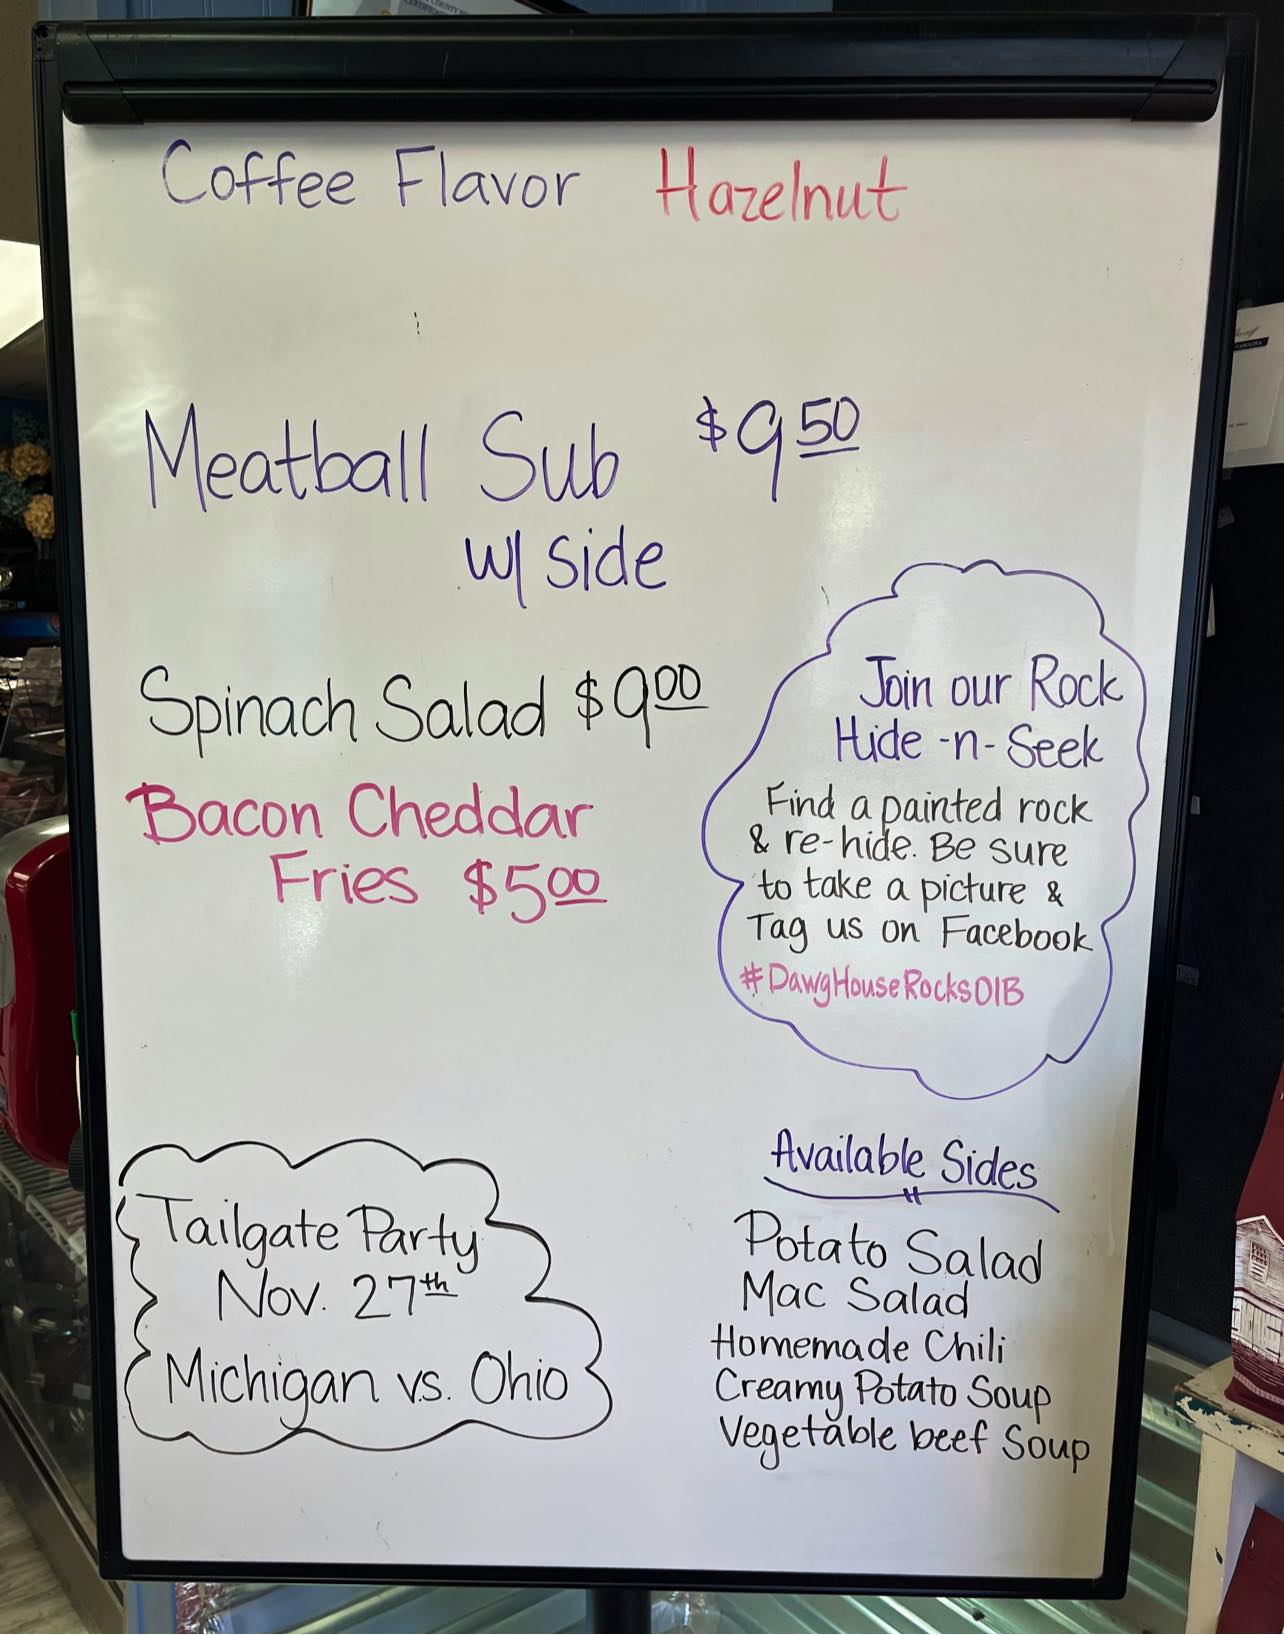 Coffee Flavor Hazelnut
Meatball Sub $9 50
w/ side
Spinach Salad $9 00
Bacon Cheddar
Fries $5 00
Join our Rock
Hide-n-Seek
Find a painted rock
& re-hide. Be sure
to take a picture &
Tag us on Facebook
#DawgHouseRocksOIB
Tailgate Party
Nov. 27th
Michigan vs. Ohio
Available Sides
Potato Salad
Mac Salad
Homemade Chili
Creamy Potato Soup
Vegetable beef Soup